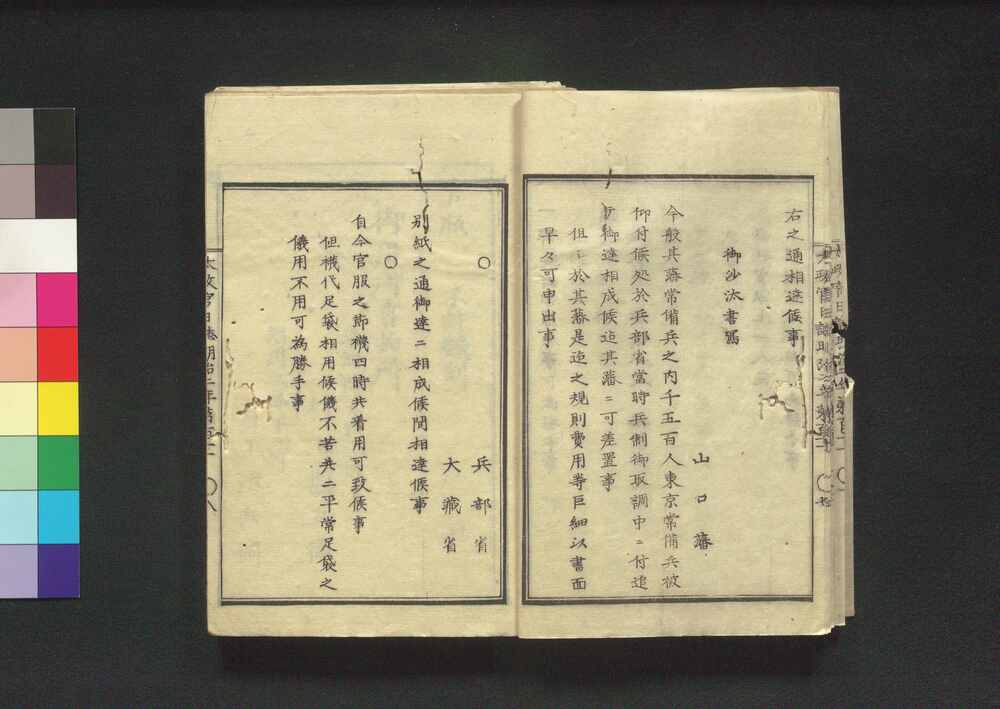 右之通相達候事
御沙汰書寫
山口藩
今般其藩常備兵之内千五百人東京常備兵被
仰付候処於兵部省當時兵制御取調中ニ付追
而御達相成候迄其藩ニ可差置事
但シ於其藩是迄之規則費用等巨細以書面
早々可申出事
○
兵部省
大藏省
別紙之通御達ニ相成候間相達候事
○
自今官服之節襪四時共着用可致候事
但襪代足袋相用候儀不苦共ニ平常足袋之
儀用不用可為勝手事
太政官日誌明治二年第百十
○八